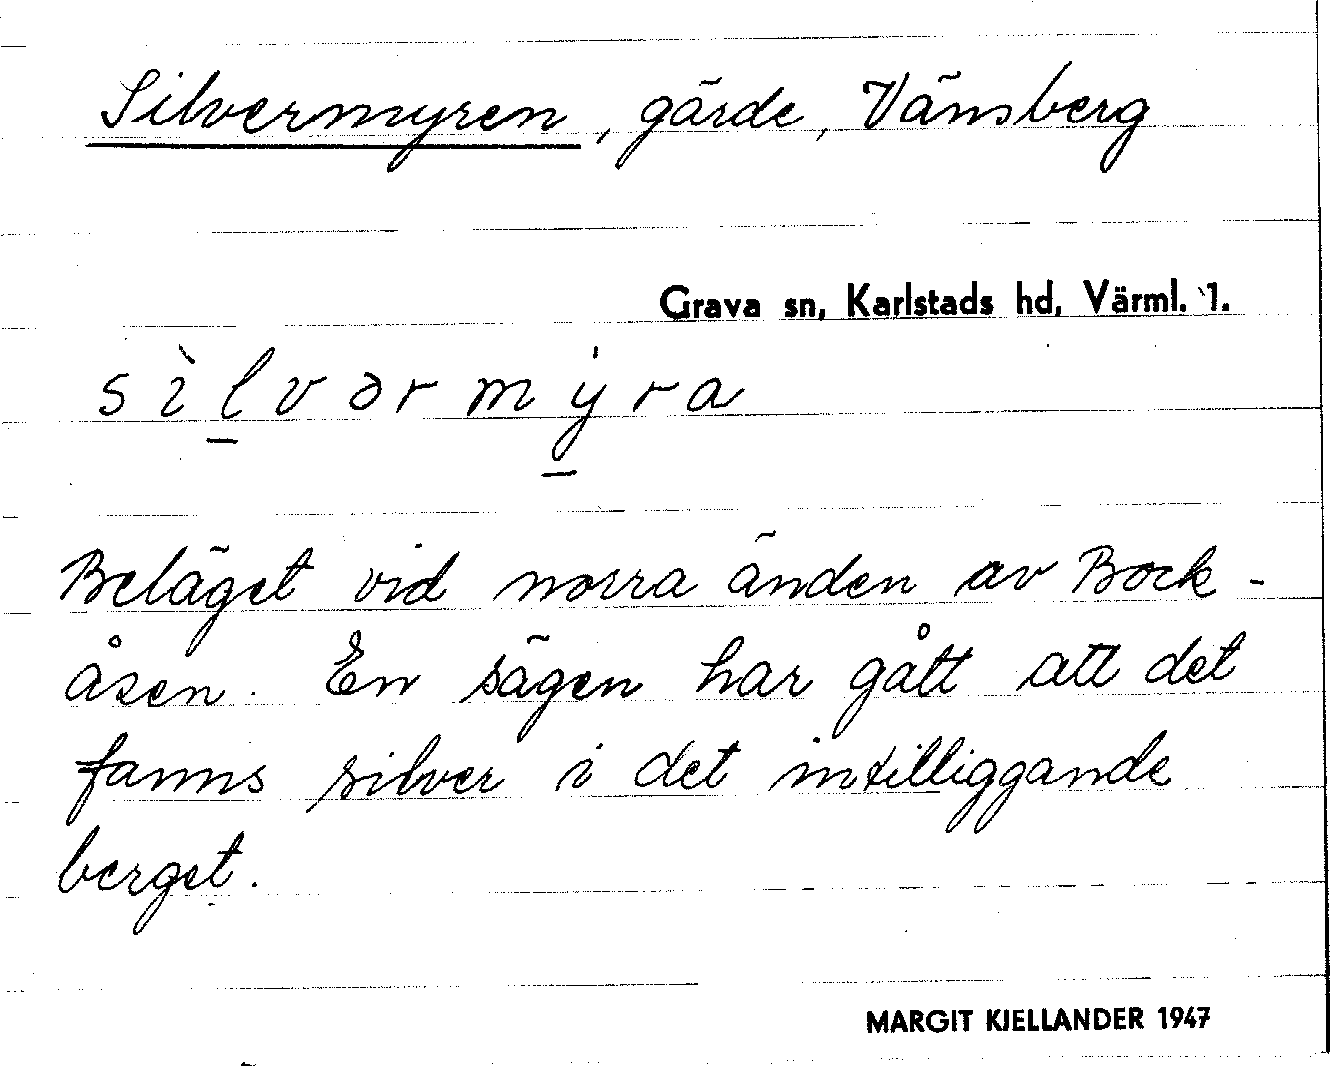 Silvermyren, gärde, Vänsberg
Grava sn, Karlstads hd, Värml. l.
sìlvərmy̍ra
Beläget vid norra änden av Bock-
åsen. En sägen har gått att det
fanns silver i det intilliggande
berget.
MARGIT KJELLANDER 1947